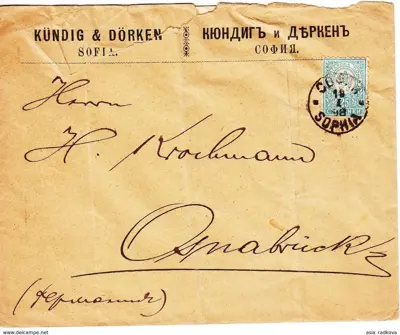 KÜNDIG & DÖRKEN
SOFIA.
КЮНДИГЪ и ДѢРКЕНЪ
СОФИЯ.
SOPHIA
Herrn
H. Krochmann
Osnabrück
(Германия)
delcampe.net
asia radkova